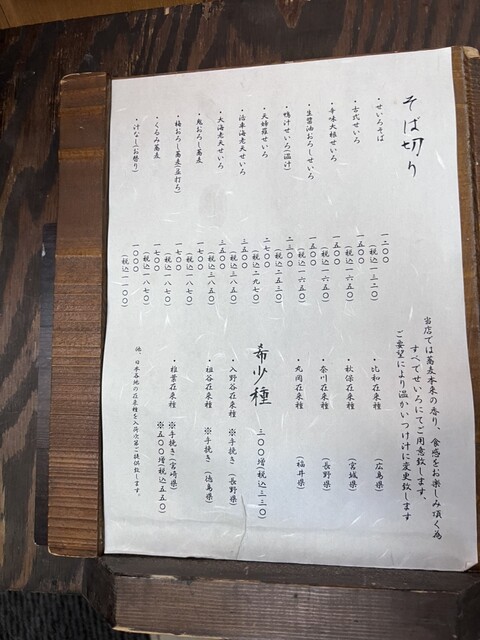 そば切り
・せいろそば 一二〇〇 (税込一三二〇)
・古式せいろ 一五〇〇 (税込一六五〇)
・辛味大根せいろ 一五〇〇 (税込一六五〇)
・生醤油おろしせいろ 一五〇〇 (税込一六五〇)
・鴨汁せいろ(温汁) 二三〇〇 (税込二五三〇)
・天婦羅せいろ 二七〇〇 (税込二九七〇)
・活車海老天せいろ 三五〇〇 (税込三八五〇)
・大海老天せいろ 三五〇〇 (税込三八五〇)
・鬼おろし蕎麦 一七〇〇 (税込一八七〇)
・梅おろし蕎麦(昆打ち) 一七〇〇 (税込一八七〇)
・くるみ蕎麦 一七〇〇 (税込一八七〇)
・汁なし(お替り) 一〇〇〇 (税込一一〇〇)
当店では蕎麦本来の香り、食感をお楽しみ頂く為
すべてせいろにてご用意致します。
ご要望により温かいつけ汁に変更致します
・比和在来種 (広島県)
・秋保在来種 (宮城県)
・奈川在来種 (長野県)
・丸岡在来種 (福井県)
希少種 三〇〇増(税込三三〇)
・入野谷在来種 ※手挽き (長野県)
・祖谷在来種 ※手挽き (徳島県)
・椎葉在来種 ※手挽き (宮崎県)
※五〇〇増(税込五五〇)
他、日本各地の在来種を入荷次第ご提供致します。